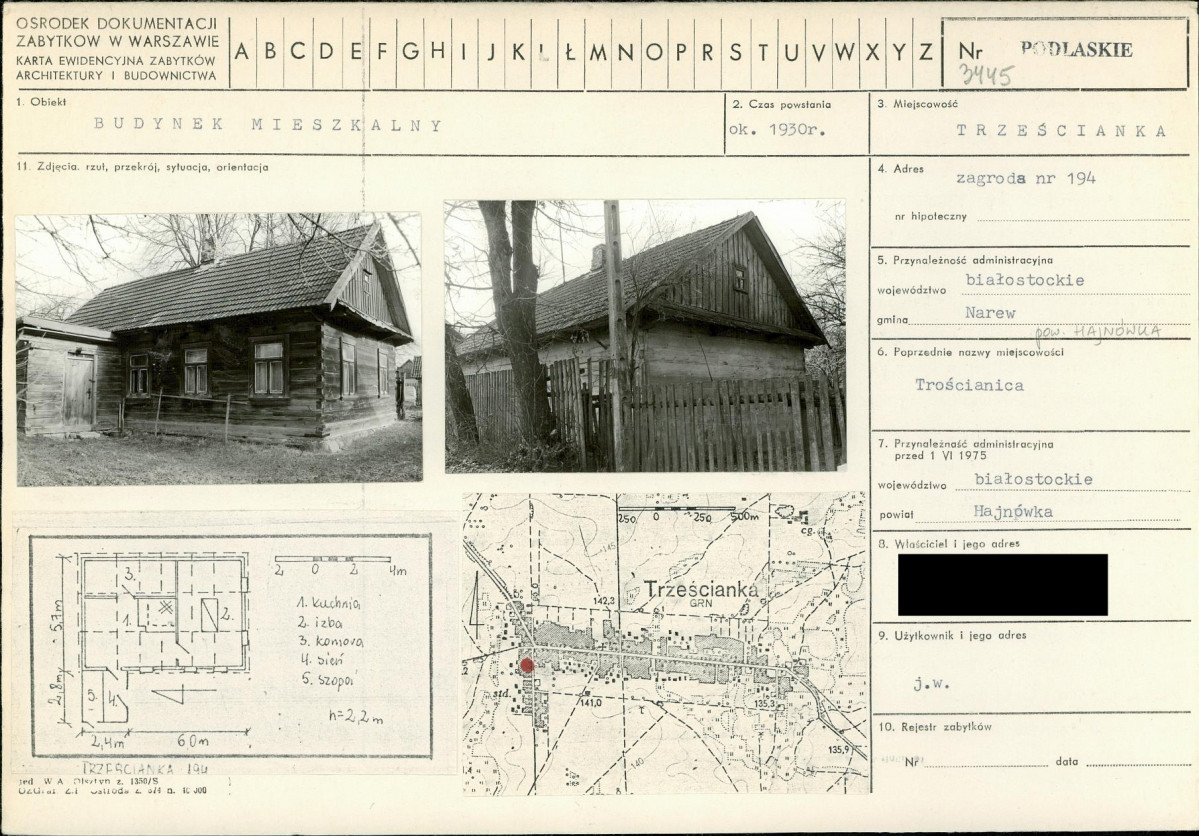 OŚRODEK DOKUMENTACJI
ZABYTKÓW W WARSZAWIE
KARTA EWIDENCYJNA ZABYTKÓW
ARCHITEKTURY I BUDOWNICTWA
A B C D E F G H I J K L Ł M N O P R S T U V W X Y Z
Nr PODLASKIE
3445
1. Obiekt
BUDYNEK MIESZKALNY
2. Czas powstania
ok. 1930r.
3. Miejscowość
TRZEŚCIANKA
11. Zdjęcia. rzut, przekrój, sytuacja, orientacja
4. Adres
zagroda nr 194
nr hipoteczny
5. Przynależność administracyjna
województwo białostockie
gmina Narew
pow. HAJNÓWKA
6. Poprzednie nazwy miejscowości
Trościanica
7. Przynależność administracyjna
przed 1 VI 1975
województwo białostockie
powiat Hajnówka
8. Właściciel i jego adres
9. Użytkownik i jego adres
j.w.
10. Rejestr zabytków
Nr data
2 0 2 4m
1. kuchnia
2. izba
3. komora
4. sień
5. szopa
h=2,2m
3.
1.
2.
5.
4.
5,7m
2,8m
2,4m
6,0m
TRZEŚCIANKA 194
250 0 250 500m
cg.
145
Trześcianka
GRN
142,3
std.
141,0
135,3
135,9
140